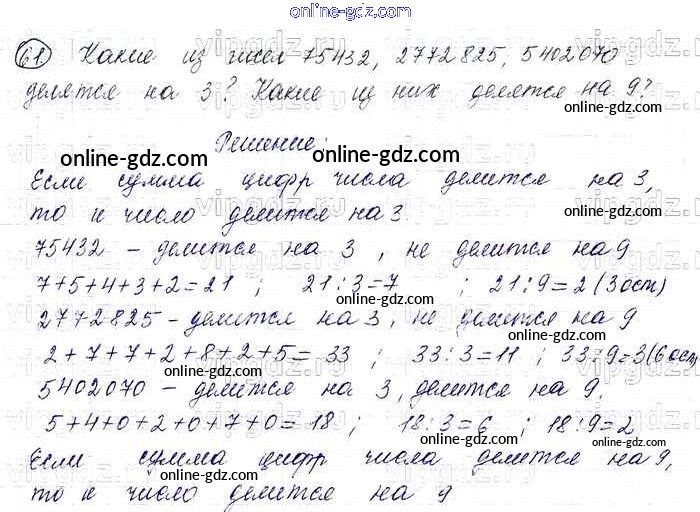 online-gdz.com
61. Какие из чисел 75432, 2772825, 5402070
делятся на 3? Какие из них делятся на 9?
Решение:
online-gdz.com
online-gdz.com
Если сумма цифр числа делится на 3,
то и число делится на 3.
online-gdz.com
75432 - делится на 3, не делится на 9
7+5+4+3+2=21 ; 21:3=7 ; 21:9=2 (3 ост)
online-gdz.com
online-gdz.com
2772825 - делится на 3, не делится на 9
online-gdz.com
2+7+7+2+8+2+5= 33 ; 33:3=11 ; 33:9=3(6 ост
online-gdz.com
5402070 - делится на 3, делится на 9.
5+4+0+2+0+7+0=18 ; 18:3=6 ; 18:9=2
online-gdz.com
online-gdz.com
Если сумма цифр числа делится на 9,
то и число делится на 9
online-gdz.com